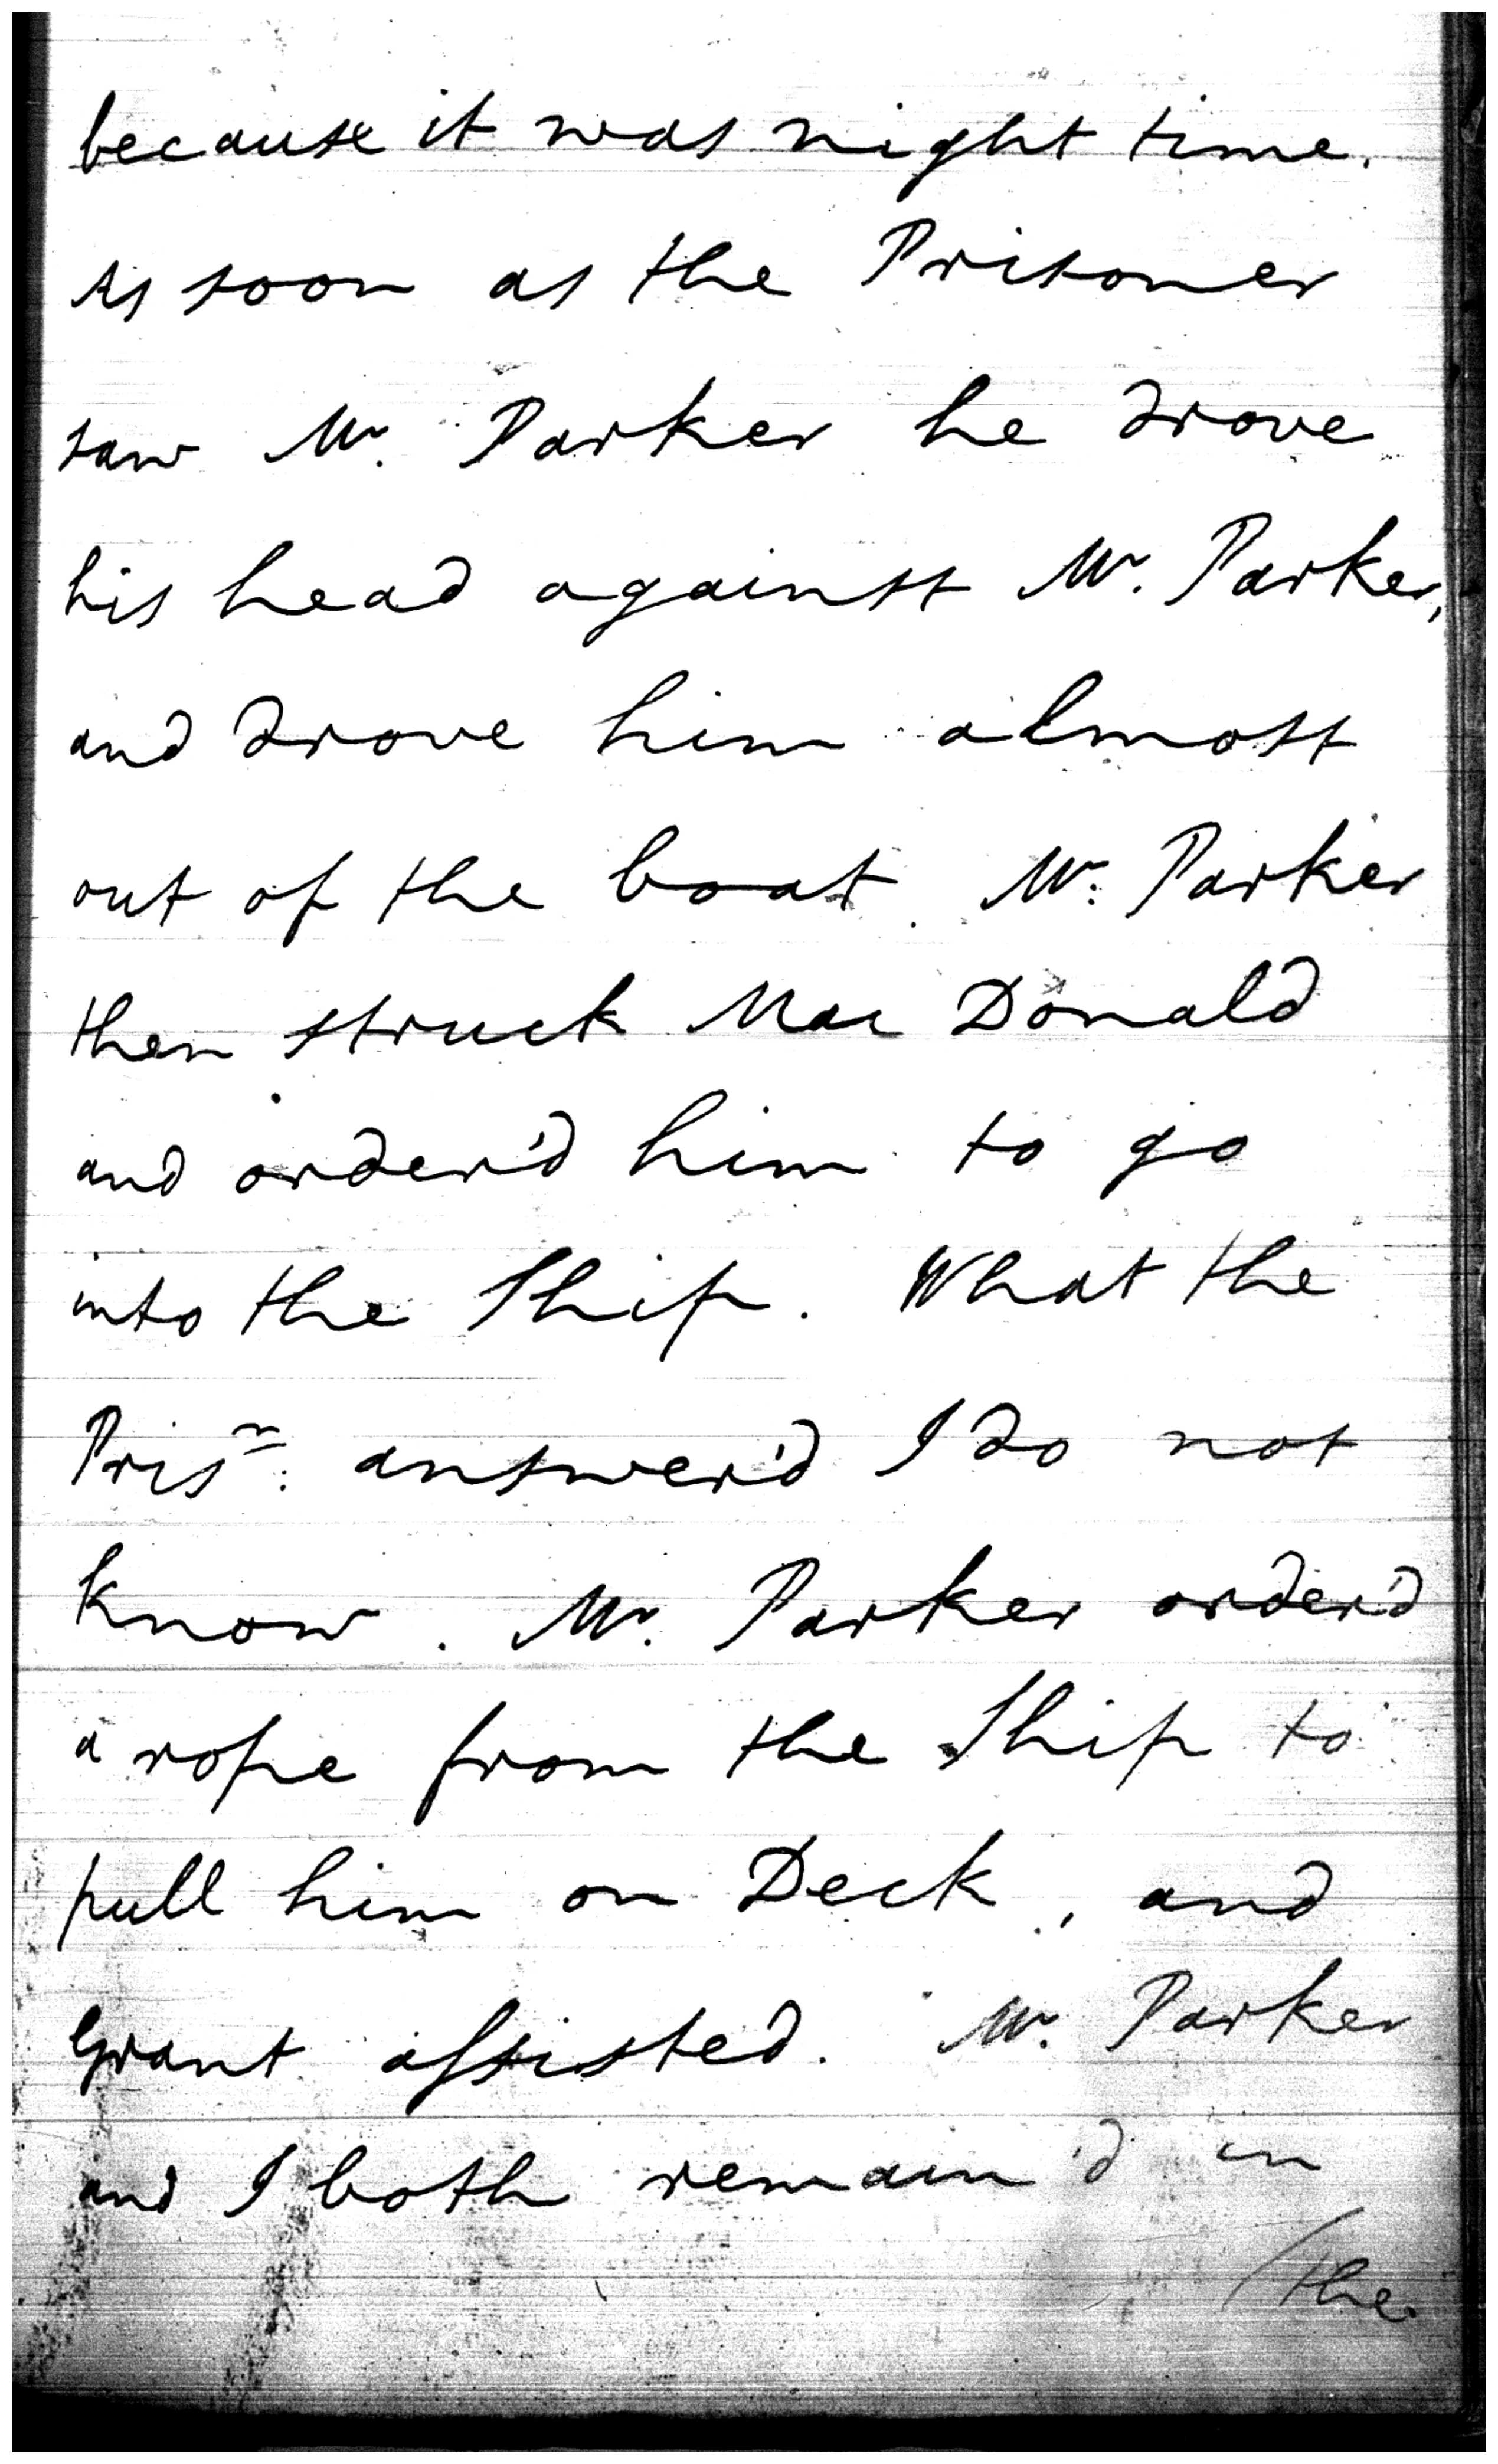 because it was night time.
As soon as the Prisoner
saw Mr. Parker he drove
his head against Mr. Parker,
and drove him almost
out of the boat. Mr. Parker
then struck Mac Donald
and order'd him to go
into the Ship. What the
Prisn: answer'd I do not
know. Mr. Parker order'd
a rope from the Ship to
pull him on Deck, and
Grant assisted. Mr. Parker
and I both remain'd in
/the